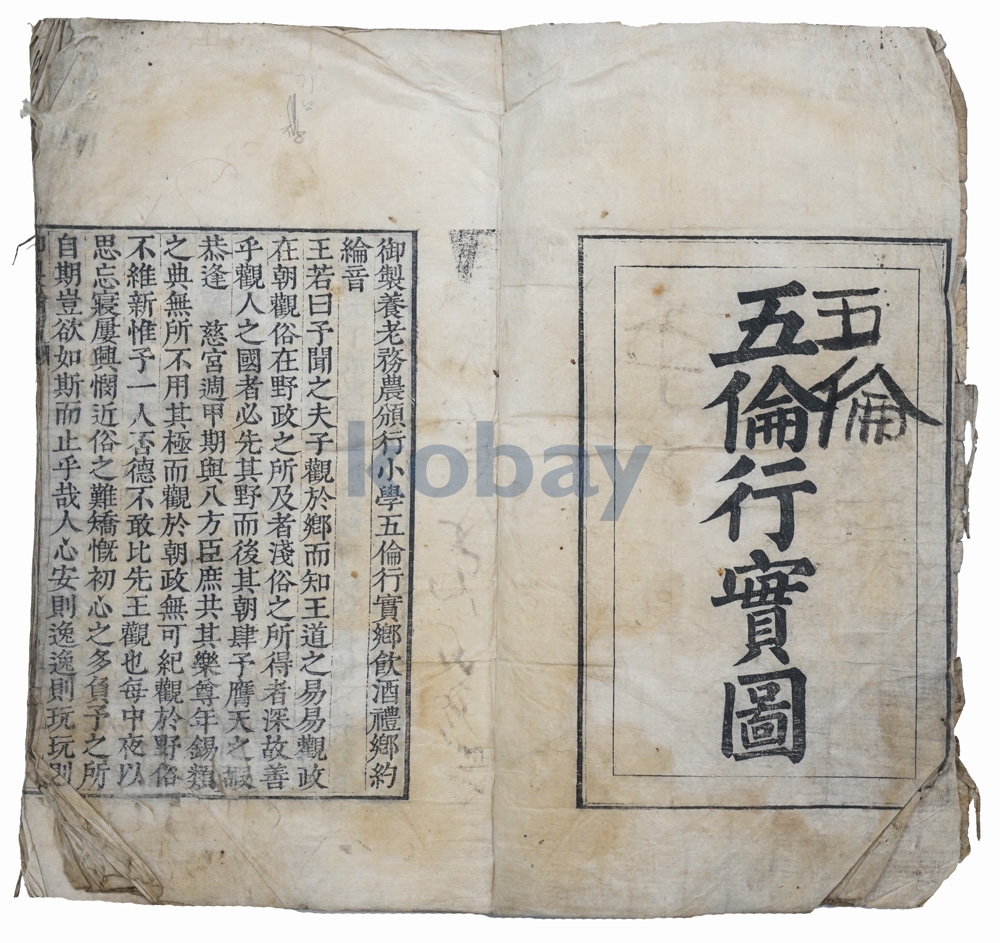 五倫
五倫行實圖
御製養老務農頒行小學五倫行實鄉飮酒禮鄉約
綸音
王若曰予聞之夫子觀於鄉而知王道之易易觀政
在朝觀俗在野政之所及者淺俗之所得者深故善
乎觀人之國者必先其野而後其朝肆予膺天之嘏
恭逢　慈宮週甲期與八方臣庶共其樂尊年錫類
之典無所不用其極而觀於朝政無可紀觀於野俗
不維新惟予一人否德不敢比先王觀也每中夜以
思忘寢屢興憫近俗之難矯慨初心之多負予之所
自期豈欲如斯而止乎哉人心安則逸逸則玩玩則
kobay